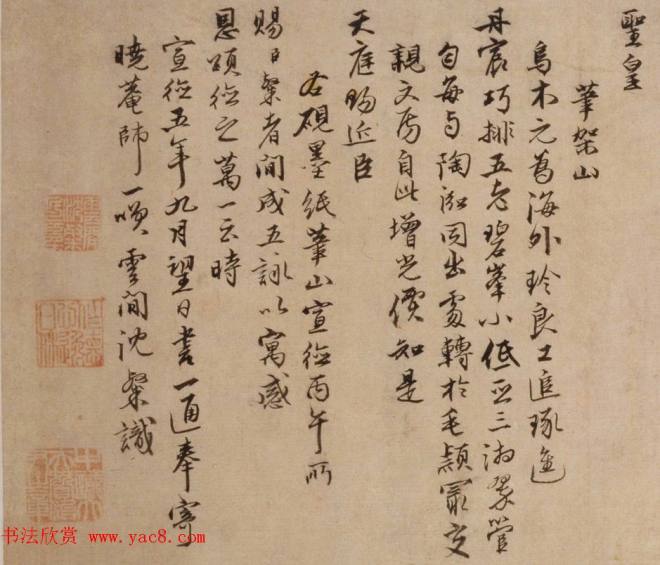 聖皇
筆架山
烏木元爲海外珍良工追琢進
丹宸巧排五老碧峯小低亞三湘翠管
勻每与陶泓同出處轉於毛穎最交
親文房自此增光價知是
天庭賜近臣
右硯墨紙筆山宣德丙午所
賜日粲者閒成五詠以寓感
恩頌德之萬一云時
宣德五年九月望日書一通奉寄
曉菴師一噗雲間沈粲識
书法欣赏 www.yac8.com